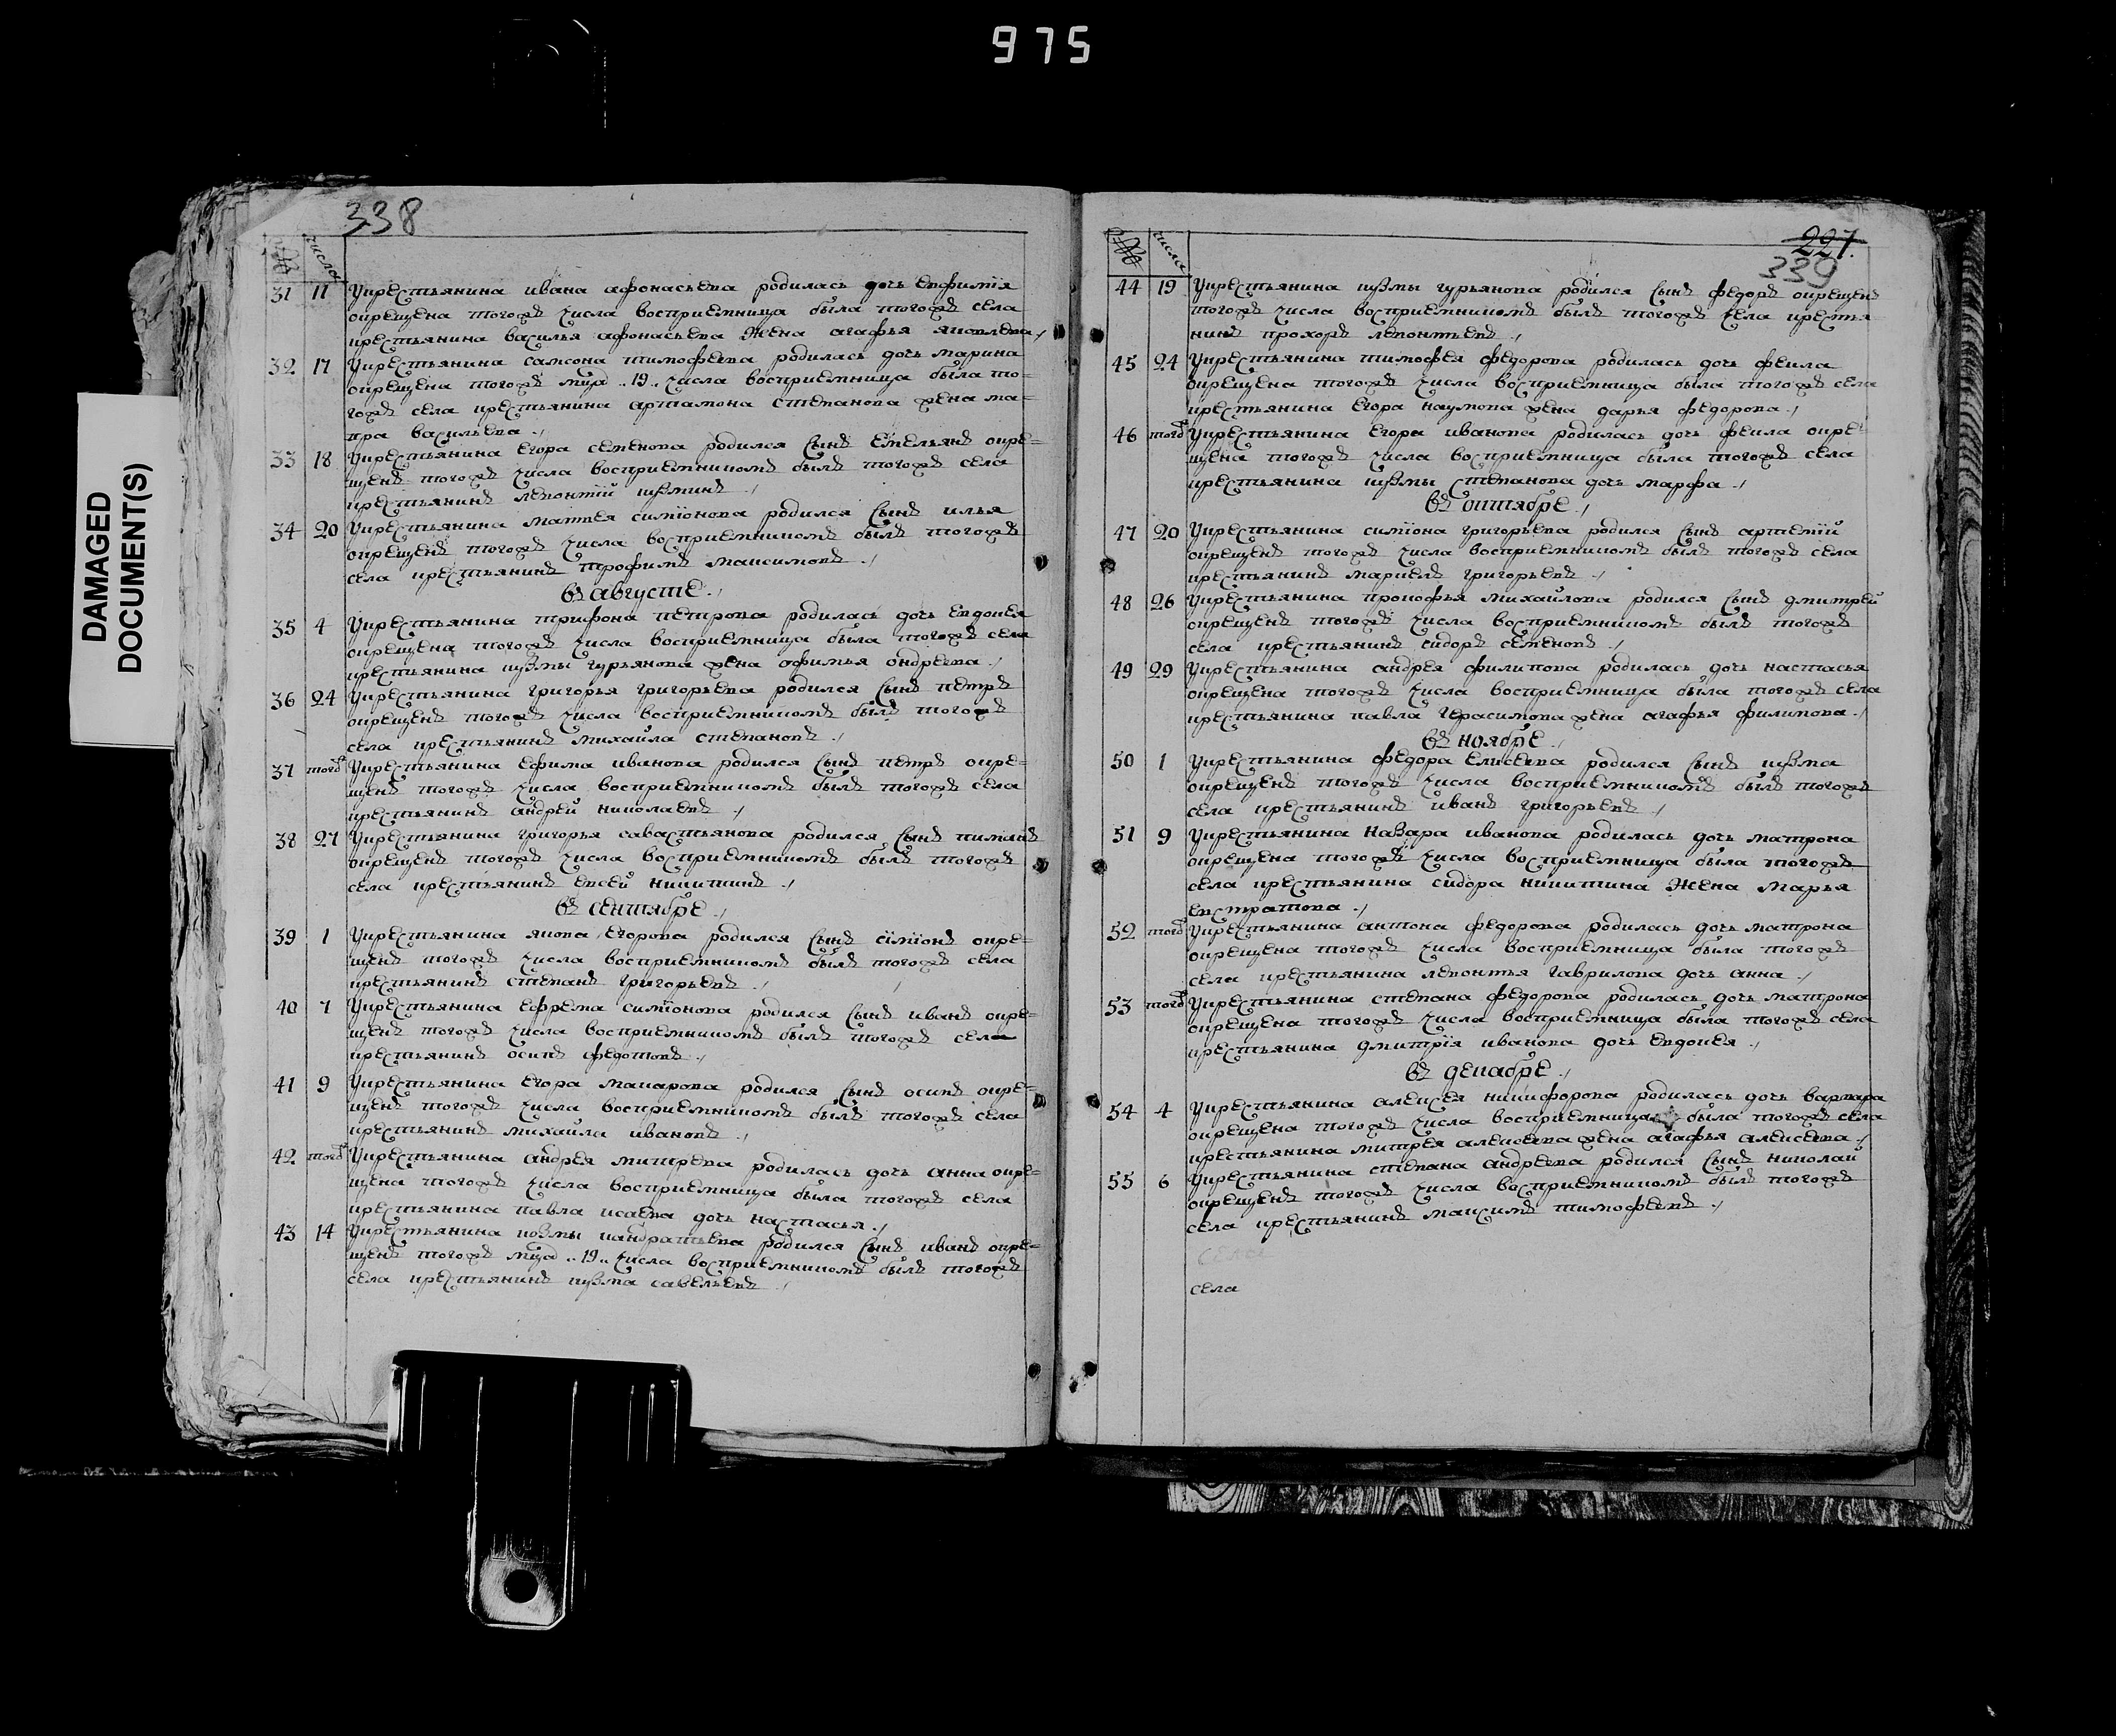 975
DAMAGED
DOCUMENT(S)
338
числа
31 11 У крестьянина ивана афонасьева родилась дочь евфимїя
окрещена тогожъ числа восприемница была тогожъ села
крестьянина василья афонасьева жена агафья яковлева
32 17 У крестьянина самсона тимофеева родилась дочь марина
окрещена тогожъ мца 19 числа восприемница была то=
гожъ села крестьянина артамона степанова жена ма=
вра васильева
33 18 У крестьянина егора семенова родился сынъ емельянъ окре=
щенъ тогожъ числа восприемникомъ былъ тогожъ села
крестьянинъ левонтїй кузминъ
34 20 У крестьянина матвея симїонова родился сынъ илья
окрещенъ тогожъ числа восприемникомъ былъ тогожъ
села крестьянинъ трофимъ максимовъ
въ августе
35 4 У крестьянина трифона петрова родилась дочь евдокея
окрещена тогожъ числа восприемница была тогожъ села
крестьянина кузмы гурьянова жена офимья ондреева
36 24 У крестьянина григорья григорьева родился сынъ петръ
окрещенъ тогожъ числа восприемникомъ былъ тогожъ
села крестьянинъ михайла степановъ
37 тогож У крестьянина ефима иванова родился сынъ петръ окре=
щенъ тогожъ числа восприемникомъ былъ тогожъ села
крестьянинъ андрей николаевъ
38 27 У крестьянина григорья савастьянова родился сынъ пиманъ
окрещенъ тогожъ числа восприемникомъ былъ тогожъ
села крестьянинъ евсей никитинъ
въ сентябре
39 1 У крестьянина якова егорова родился сынъ симїонъ окре=
щенъ тогожъ числа восприемникомъ былъ тогожъ села
крестьянинъ степанъ григорьевъ
40 7 У крестьянина ефрема симїонова родился сынъ иванъ окре=
щенъ тогожъ числа восприемникомъ былъ тогожъ села
крестьянинъ осипъ федотовъ
41 9 У крестьянина егора макарова родился сынъ осипъ окре=
щенъ тогожъ числа восприемникомъ былъ тогожъ села
крестьянинъ михайла ивановъ
42 тогож У крестьянина андрея митрева родилась дочь анна окре=
щена тогожъ числа восприемница была тогожъ села
крестьянина павла исаева дочь настасья
43 14 У крестьянина козмы кандратьева родился сынъ иванъ окре=
щенъ тогожъ мца 19 числа восприемникомъ былъ тогожъ
села крестьянинъ кузма савельевъ
227.
339
числа
44 19 У крестьянина кузмы гурьянова родился сынъ федоръ окрещенъ
тогожъ числа восприемникомъ былъ тогожъ села крестья
нинъ прохоръ левонтьевъ
45 24 У крестьянина тимофея федорова родилась дочь фекла
окрещена тогожъ числа восприемница была тогожъ села
крестьянина егора наумова жена дарья федорова
46 тогож У крестьянина егора иванова родилась дочь фекла окре=
щена тогожъ числа восприемница была тогожъ села
крестьянина кузмы степанова дочь марфа
въ октябре
47 20 У крестьянина симїона григорьева родился сынъ артемїй
окрещенъ тогожъ числа восприемникомъ былъ тогожъ села
крестьянинъ маркелъ григорьевъ
48 26 У крестьянина прокофья михайлова родился сынъ дмитрей
окрещенъ тогожъ числа восприемникомъ былъ тогожъ
села крестьянинъ сидоръ семеновъ
49 29 У крестьянина андрея филипова родилась дочь настасья
окрещена тогожъ числа восприемница была тогожъ села
крестьянина павла герасимова жена агафья филипова
въ ноябре
50 1 У крестьянина федора елисеева родился сынъ кузма
окрещенъ тогожъ числа восприемникомъ былъ тогожъ
села крестьянинъ иванъ григорьевъ
51 9 У крестьянина назара иванова родилась дочь матрона
окрещена тогожъ числа восприемница была тогожъ
села крестьянина сидора никитина жена марья
евстратова
52 тогож У крестьянина антона федорова родилась дочь матрона
окрещена тогожъ числа восприемница была тогожъ
села крестьянина левонтья гаврилова дочь анна
53 тогож У крестьянина степана федорова родилась дочь матрона
окрещена тогожъ числа восприемница была тогожъ села
крестьянина дмитрїя иванова дочь евдокея
въ декабре
54 4 У крестьянина алексея никифорова родилась дочь варвара
окрещена тогожъ числа восприемница была тогожъ села
крестьянина митрея алексеева жена агафья алексеева
55 6 У крестьянина степана андреева родился сынъ николай
окрещенъ тогожъ числа восприемникомъ былъ тогожъ
села крестьянинъ максимъ тимофеевъ
села